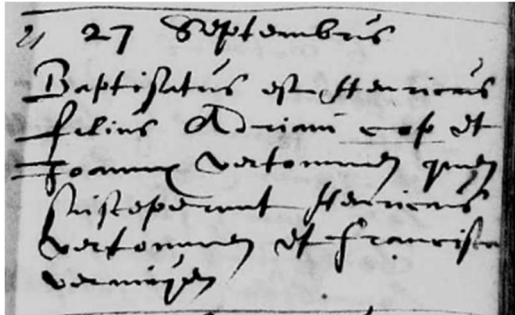 27 Septembris
Baptisatus est Henricus
filius Adriani cop et
Joannae vertommen quem
susceperunt Henricus
vertommen et francisca